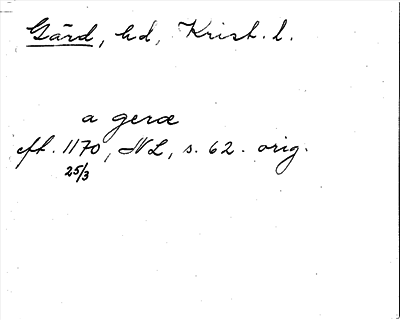 Gärd, hd, Krist. l.
a geræ
eft. 1170, NL, s. 62. orig.
25/3